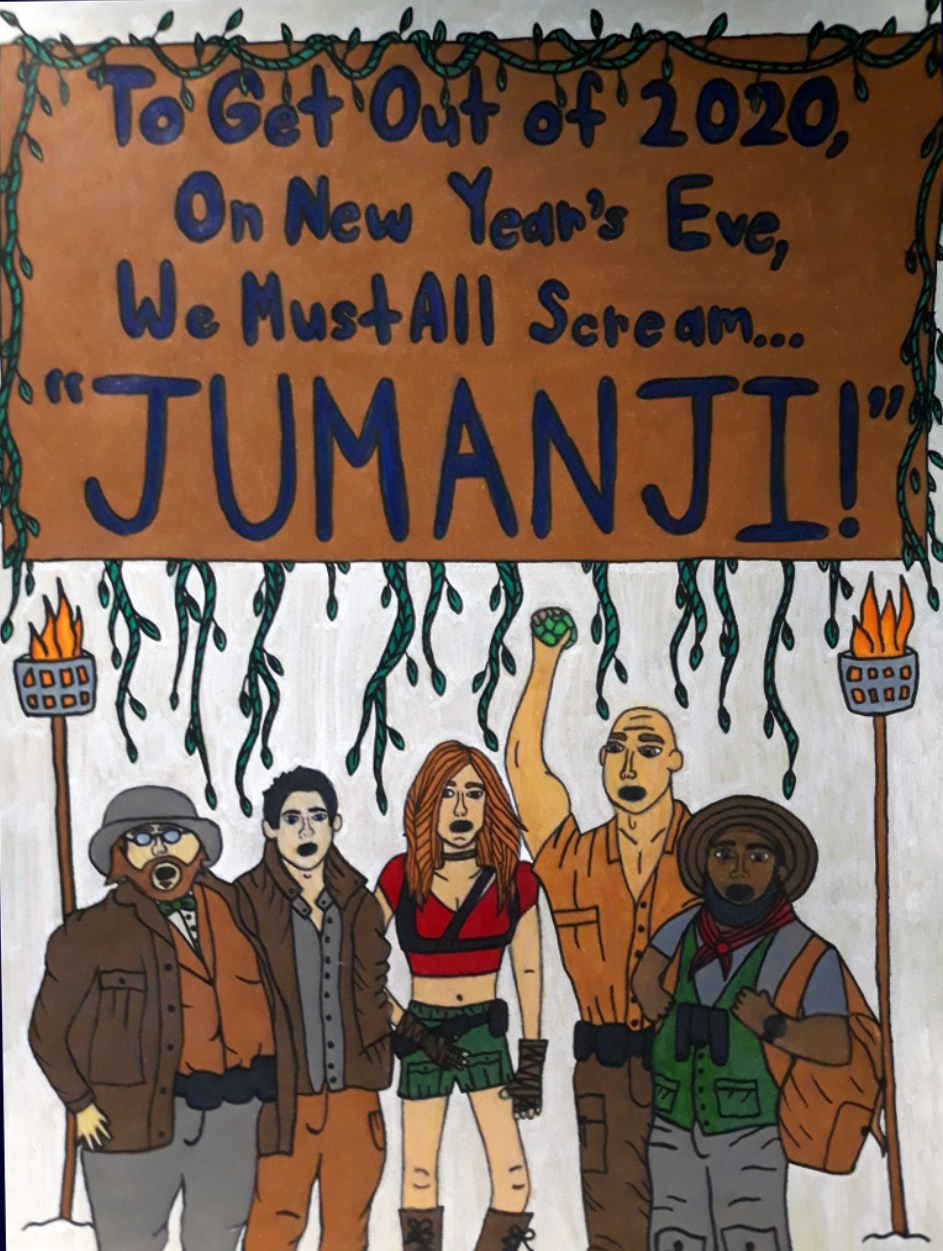 To Get Out of 2020,
On New Year's Eve,
We Must All Scream...
"JUMANJI!"